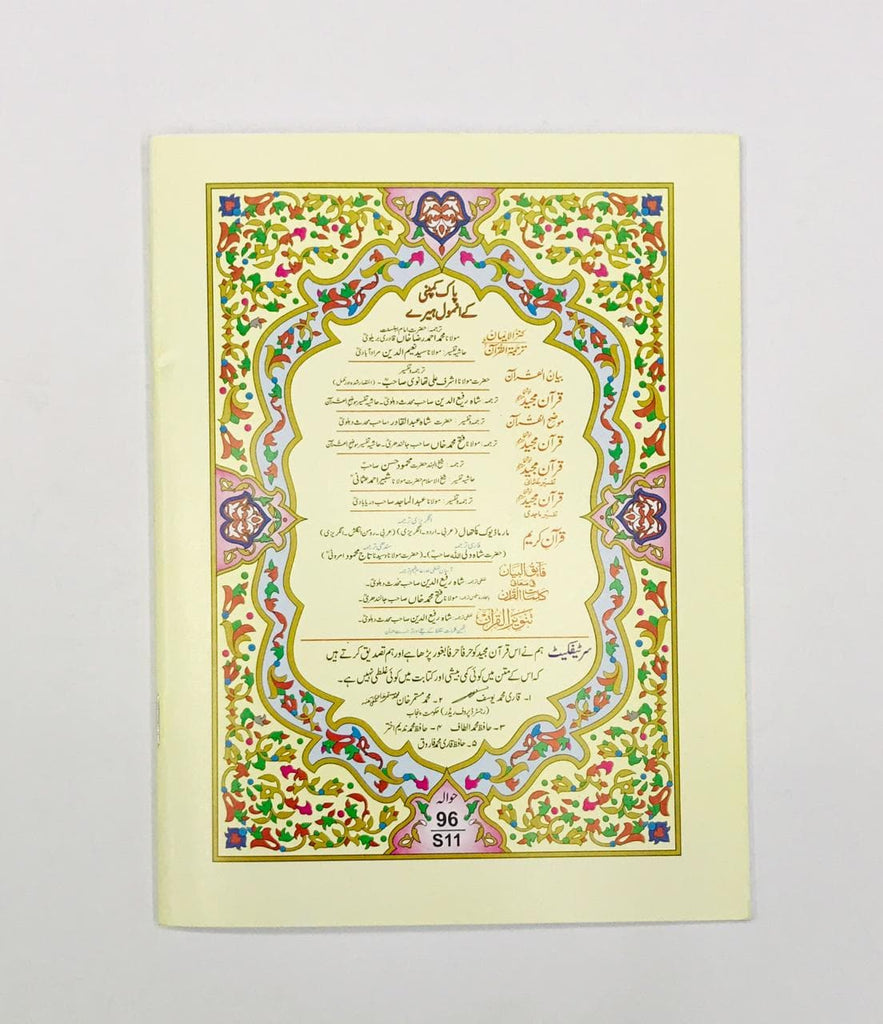 پاک کمپنی
کے انمول ہیرے
کنز الایمان ترجمہ: حضرت امام اہلسنت
ترجمۃ القرآن مولانا محمد احمد رضا خاں قادری بریلوی
حاشیہ تفسیر: مولانا سید نعیم الدین مراد آبادی
ترجمہ و تفسیر
بیان القرآن حضرت مولانا اشرف علی تھانوی صاحبؒ۔
قرآن مجید ترجمہ شاہ رفیع الدین صاحب محدث دہلویؒ۔ حاشیہ تفسیر موضح القرآن
موضح القرآن ترجمہ و تفسیر: حضرت شاہ عبدالقادر صاحب محدث دہلویؒ
قرآن مجید ترجمہ: مولانا فتح محمد خاں صاحب جالندھریؒ۔ حاشیہ تفسیر موضح القرآن
قرآن مجید ترجمہ: شیخ الہند حضرت محمود حسن صاحبؒ
تفسیر عثمانی حاشیہ تفسیر: شیخ الاسلام حضرت مولانا شبیر احمد عثمانیؒ
قرآن مجید ترجمہ و تفسیر: مولانا عبدالماجد صاحب دریابادیؒ
تفسیر ماجدی
انگریزی ترجمہ
قرآن کریم مارماڈیوک پکتھال (عربی۔اردو۔انگریزی) (عربی۔رومن انگلش۔انگریزی)
فارسی ترجمہ سندھی ترجمہ
(حضرت شاہ ولی اللہ صاحبؒ)۔ (حضرت مولانا سیدنا تاج محمود امروٹیؒ)
شاہ رفیع الدین صاحب محدث دہلویؒ۔
فی معانی
کلمات القرآن مولانا فتح محمد خاں صاحب جالندھریؒ۔
تنویر القرآن لفظی ترجمہ: شاہ رفیع الدین صاحب محدث دہلویؒ۔
سرٹیفکیٹ ہم نے اس قرآن مجید کو حرفاً حرفاً بغور پڑھا ہے اور ہم تصدیق کرتے ہیں
کہ اس کے متن میں کوئی کمی بیشی اور کتابت میں کوئی غلطی نہیں ہے۔
۱۔ قاری محمد یوسف ۲۔ محمد مستمر خان
(رجسٹرڈ پروف ریڈر) حکومت پنجاب
۳۔ حافظ محمد الطاف ۴۔ حافظ محمد ندیم اختر
۵۔ حافظ قاری محمد فاروق
حوالہ
96
S11